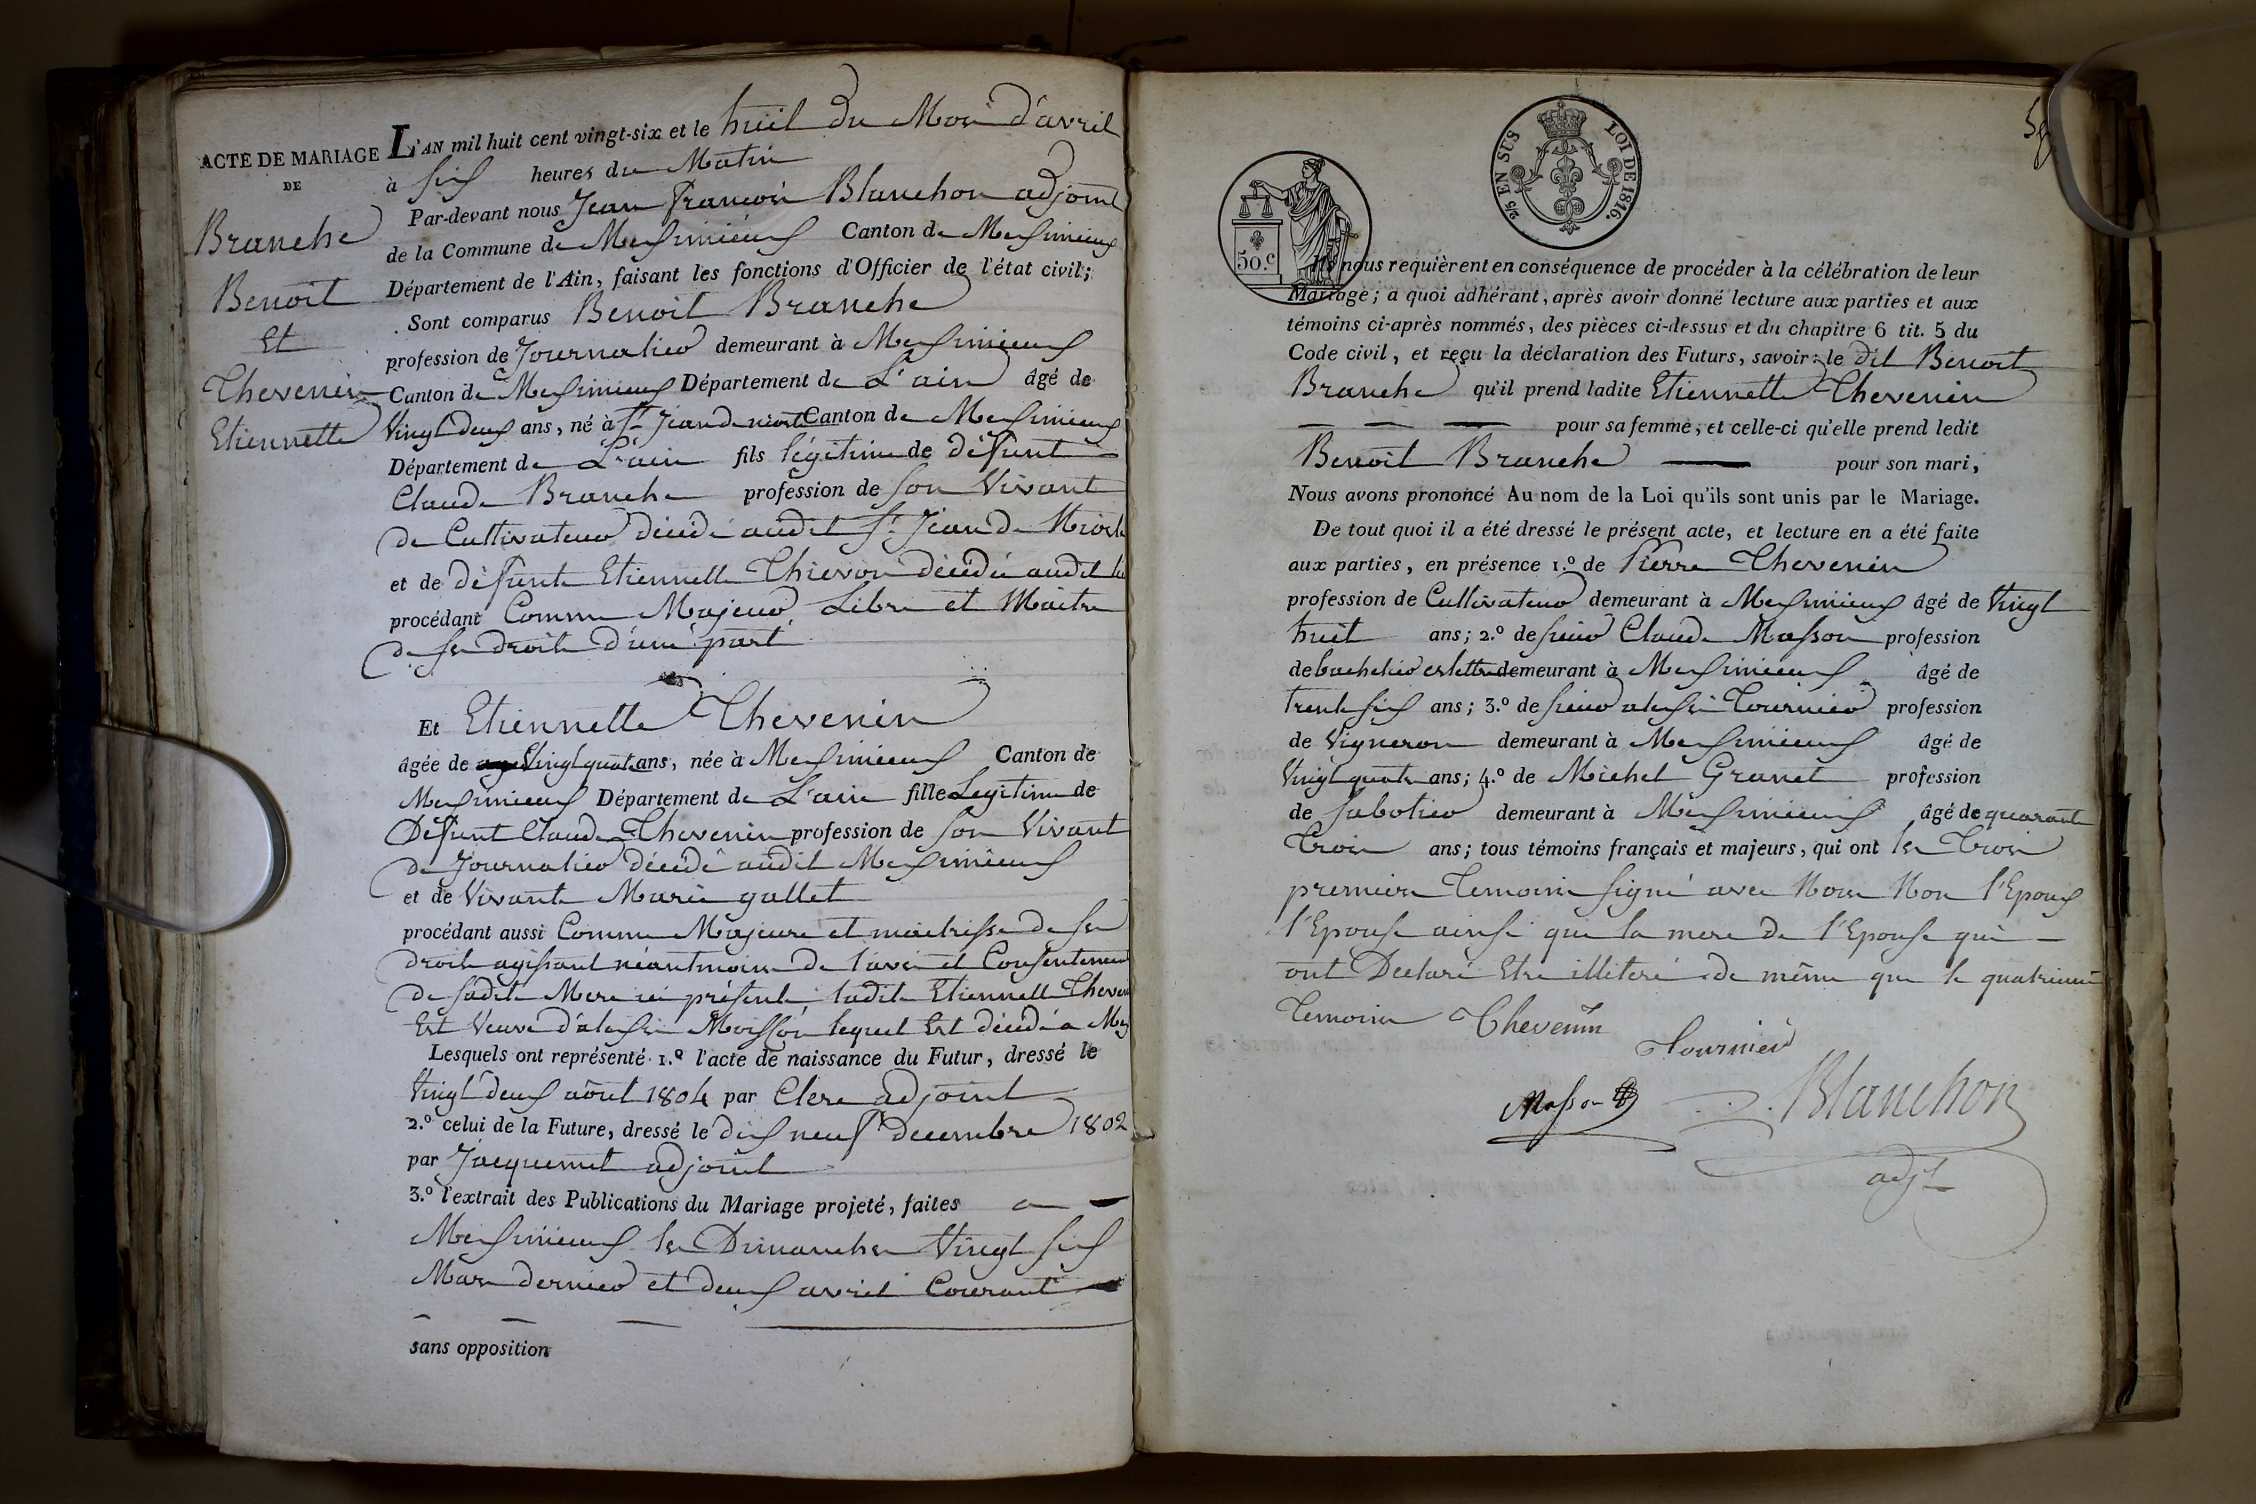 ACTE DE MARIAGE
DE
Branche
Benoit
Et
Thevenin
Etiennette
L'AN mil huit cent vingt-six et le huit du Mois d'avril
à six heures du Matin
Par-devant nous Jean François Blanchon adjoint
de la Commune de Meximieux Canton de Meximieux
Département de l'Ain, faisant les fonctions d'Officier de l'état civil;
Sont comparus Benoit Branche
profession de Journalier demeurant à Meximieux
Canton de Meximieux Département de L'ain âgé de
Vingt deux ans, né à St Jean de niost Canton de Meximieux
Département de L'ain fils légitime de défunt
Claude Branche profession de son Vivant
de Cultivateur décédé audit St Jean de Niost
et de défunte Etiennette Thievon décédée audit lieu
procédant Comme Majeur Libre et Maitre
de ses droits d'une part
Et Etiennette Thevenin
âgée de Vingt quatre ans, née à Meximieux Canton de
Meximieux Département de L'ain fille Legitime de
Défunt Claude Thevenin profession de son Vivant
de Journalier décédé audit Meximieux
et de Vivante Marie gallet
procédant aussi Comme Majeure et maitresse de ses
droits agissant néantmoins de l'avis et Consentement
de sadite Mere ici présente ladite Etiennette Theven
Est Veuve d'alexis Moisson lequel Est décédé a Mex
Lesquels ont représenté 1.º l'acte de naissance du Futur, dressé le
Vingt deux août 1804 par Clerc adjoint
2.º celui de la Future, dressé le dix neuf decembre 1802
par Jacquemet adjoint
3.º l'extrait des Publications du Mariage projeté, faites a
Meximieux les Dimanches Vingt six
Mars dernier et deux avril Courant
sans opposition
2/5 EN SUS LOI DE 1816.
50.c
Ils nous requièrent en conséquence de procéder à la célébration de leur
Mariage; a quoi adhérant, après avoir donné lecture aux parties et aux
témoins ci-après nommés, des pièces ci-dessus et du chapitre 6 tit. 5 du
Code civil, et reçu la déclaration des Futurs, savoir: le dit Benoit
Branche qu'il prend ladite Etiennette Thevenin
pour sa femme, et celle-ci qu'elle prend ledit
Benoit Branche pour son mari,
Nous avons prononcé Au nom de la Loi qu'ils sont unis par le Mariage.
De tout quoi il a été dressé le présent acte, et lecture en a été faite
aux parties, en présence 1.º de Pierre Thevenin
profession de Cultivateur demeurant à Meximieux âgé de Vingt
huit ans; 2.º de sieur Claude Masson profession
de bachelier es lettre demeurant à Meximieux âgé de
trente six ans; 3.º de sieur alexis Tournier profession
de Vigneron demeurant à Meximieux âgé de
Vingt quatre ans; 4.º de Michel Granet profession
de sabotier demeurant à Meximieux âgé de quarante
Trois ans; tous témoins français et majeurs, qui ont les Trois
premiers Temoins signé avec Nous Non l'Epoux
l'Epouse ainsi que la mere de l'Epouse qui
ont Declaré Etre illiteré de même que le quatrieme
Temoins Thevenin
Tournier
Masson
Blanchon
adjt